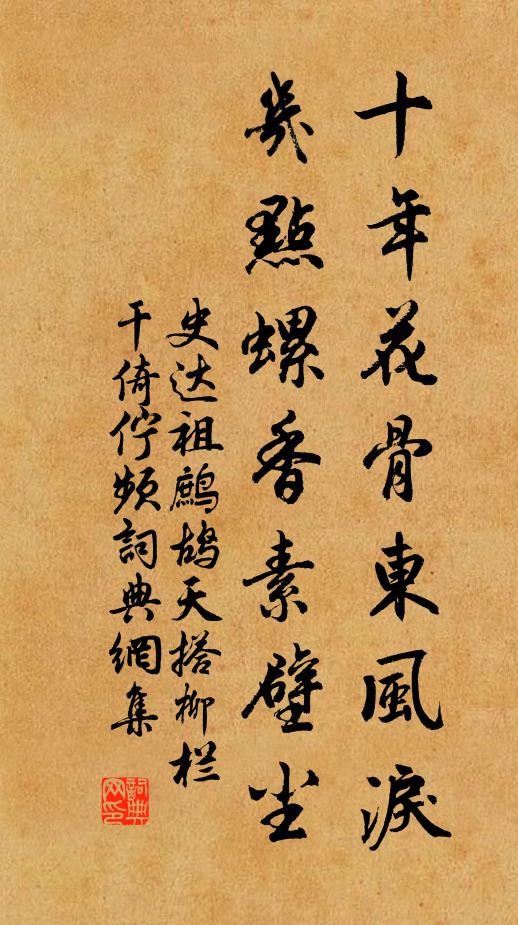 十年花骨東風淚
幾點螺香素壁尘
史达祖鹧鸪天搭柳栏
干倚伫频詞典網集
詞典网印